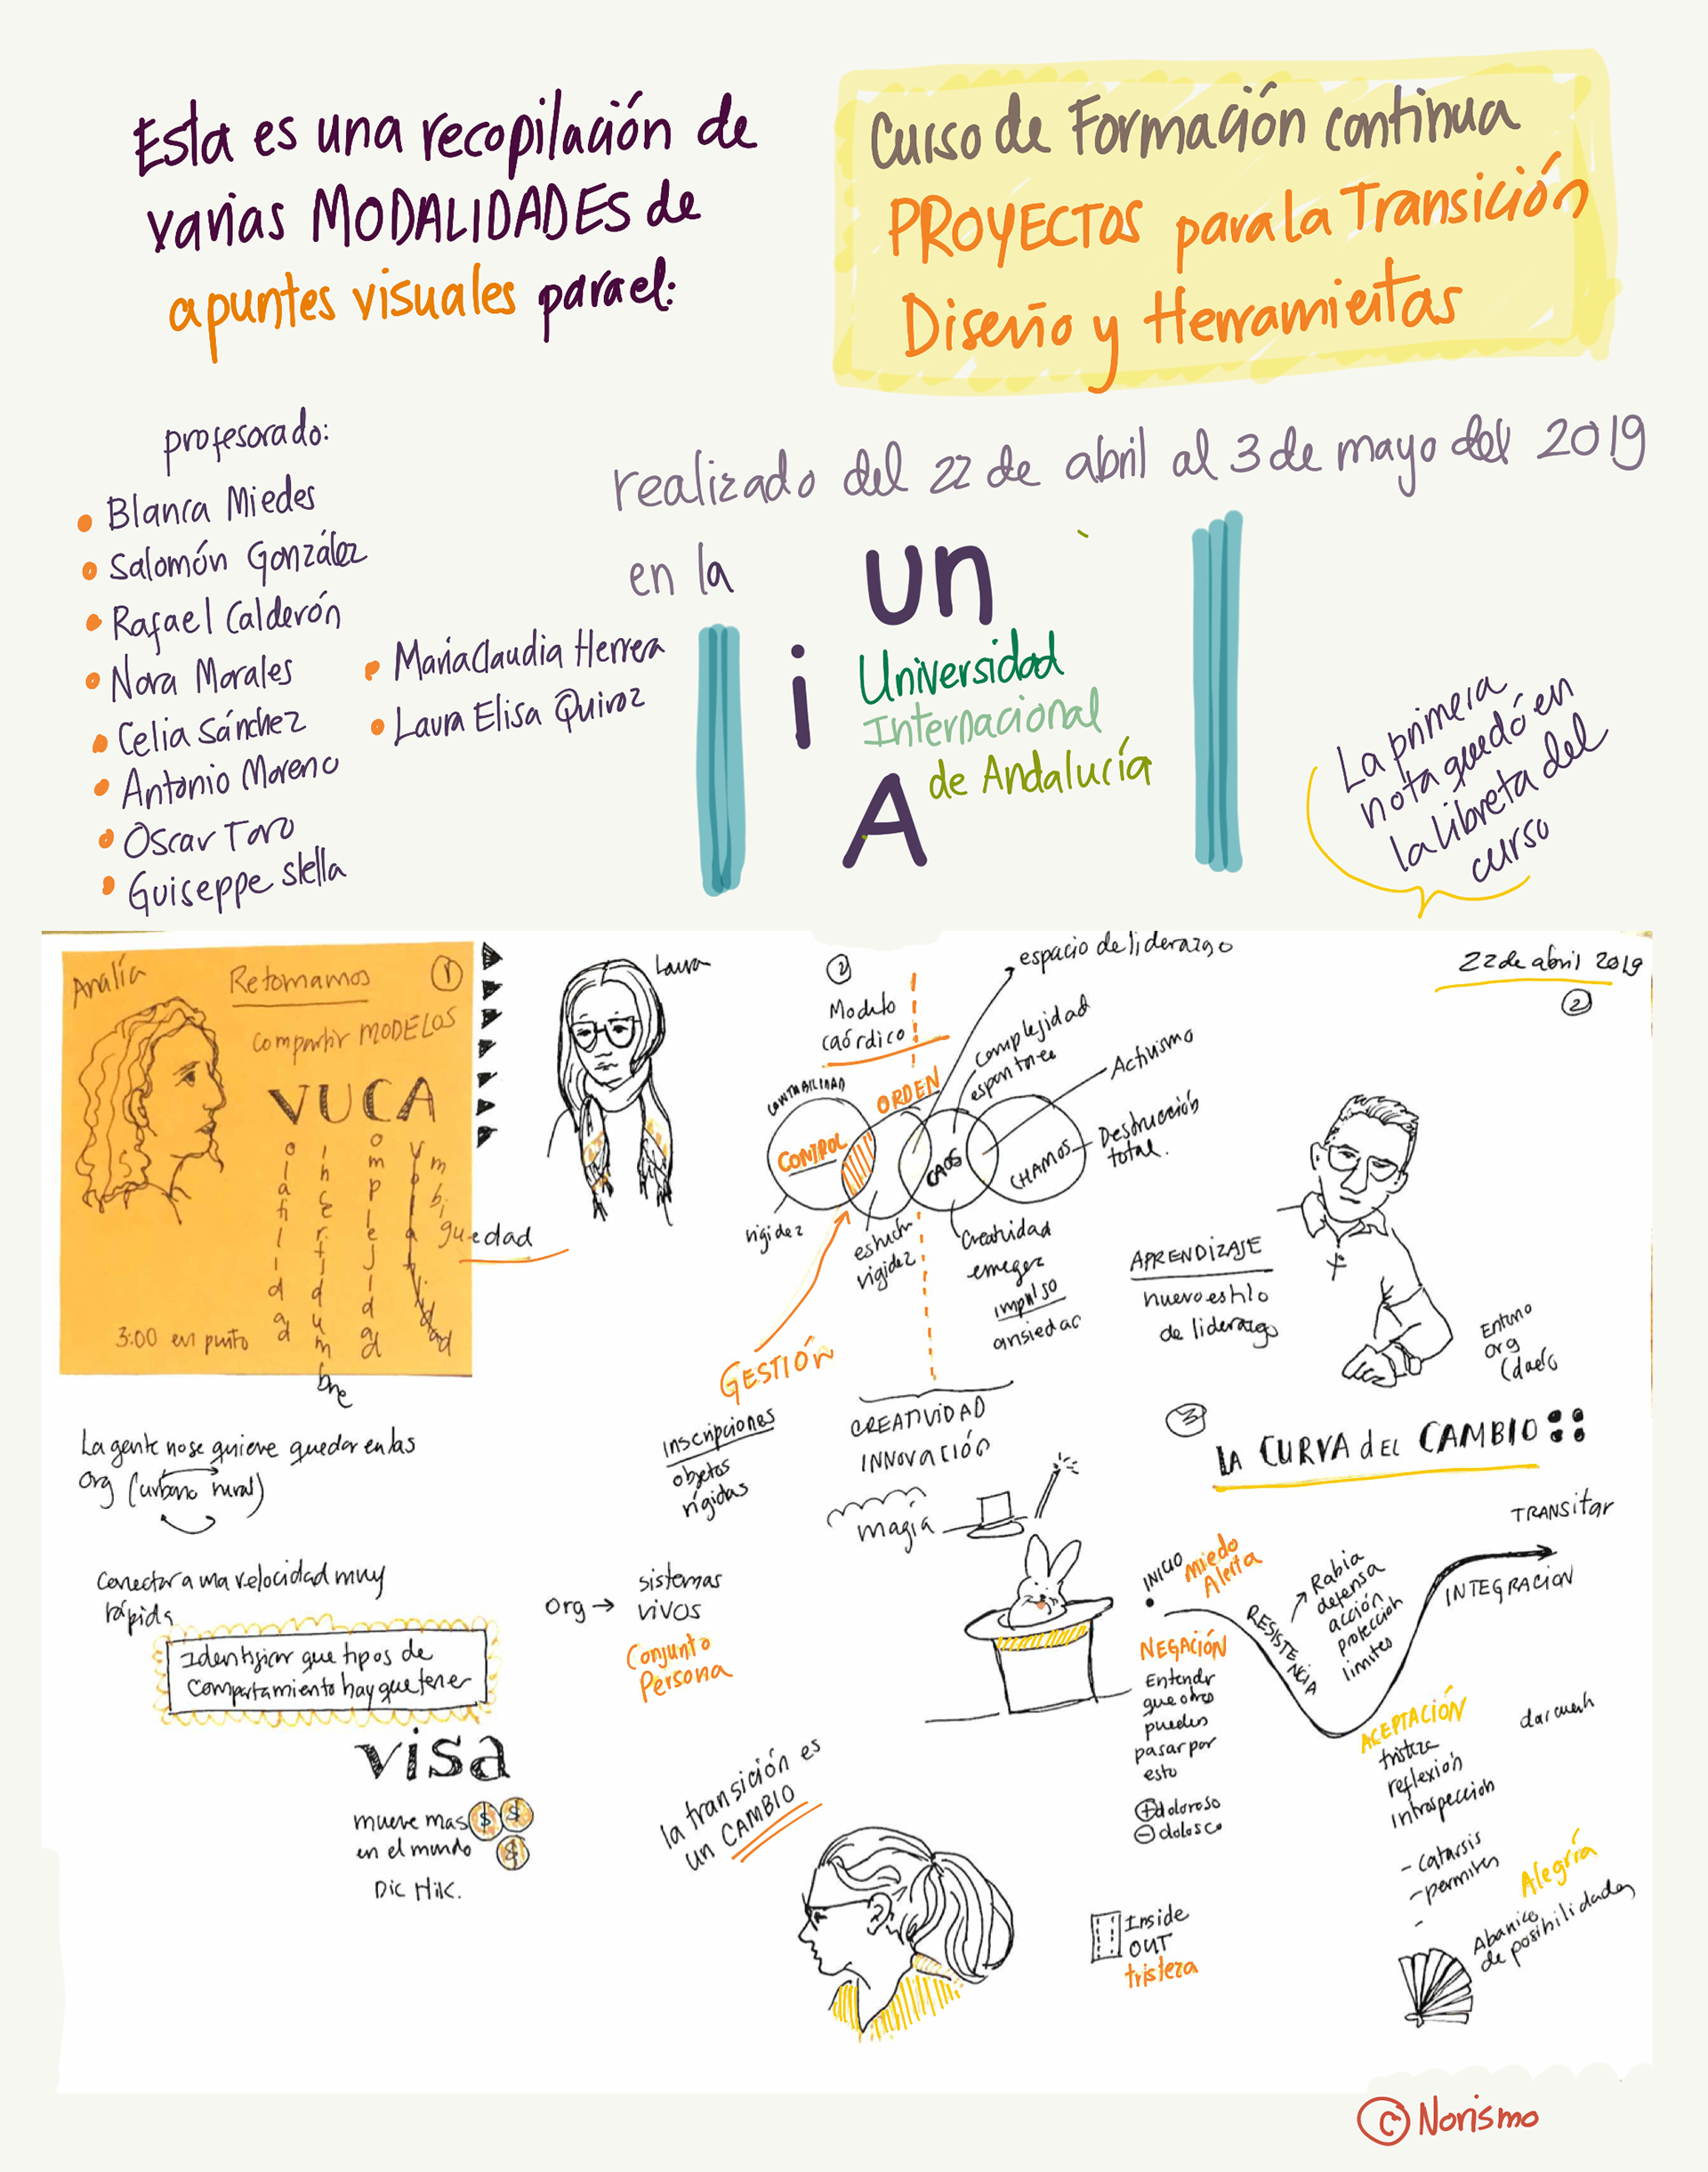 Esta es una recopilación de
varias MODALIDADES de
apuntes visuales para el:
Curso de Formación continua
PROYECTOS para la Transición
Diseño y Herramientas
realizado del 22 de abril al 3 de mayo del 2019
en la
un
i
A
Universidad
Internacional
de Andalucía
profesorado:
Blanca Miedes
Salomón González
Rafael Calderón
Nora Morales
Celia Sánchez
Antonio Moreno
Oscar Toro
Guiseppe stella
Maria Claudia Herrera
Laura Elisa Quiroz
La primera
nota quedó en
la libreta del
curso
Analía
Retomamos
1
compartir MODELOS
VUCA
olatilidad
incertidumbre
omplejidad
mbiguedad
3:00 en punto
La gente no se quiere quedar en las
org (urbano rural)
Conectar a una velocidad muy
rápida
Identificar que tipos de
comportamiento hay que tener
visa
mueve mas $ $
en el mundo $
Dic Hik.
Laura
2
Modulo
caórdico
espacio de liderazgo
complejidad
Activismo
Destrucción
total.
ORDEN
CONTROL
CAOS
CHAMOS
rigidez
rigidez
Creatividad
emerger
impulso
ansiedad
GESTIÓN
inscripciones
objetos
rígidas
CREATIVIDAD
INNOVACIÓN
magia
org → sistemas
vivos
Conjunto
Persona
la transición es
un CAMBIO
22 de abril 2019
2
APRENDIZAJE
nuevo estilo
de liderazgo
Entorno
org
3
LA CURVA dEL CAMBIO
TRANSitar
INICIO
Miedo
Alerta
NEGACIÓN
Entender
que otros
pueden
pasar por
esto
+ doloroso
RESISTENCIA
Rabia
defensa
acción
protección
limites
INTEGRACION
ACEPTACIÓN
tristeza
reflexión
introspeccion
- catarsis
- permites
-
Alegría
Abanico
de posibilidades
Inside
OUT
tristeza
© Norismo